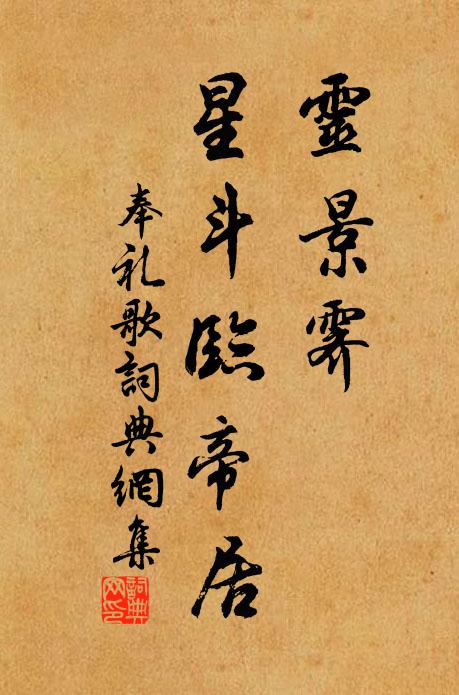 靈景霽
星斗臨帝居
奉礼歌詞典網集
詞典网印